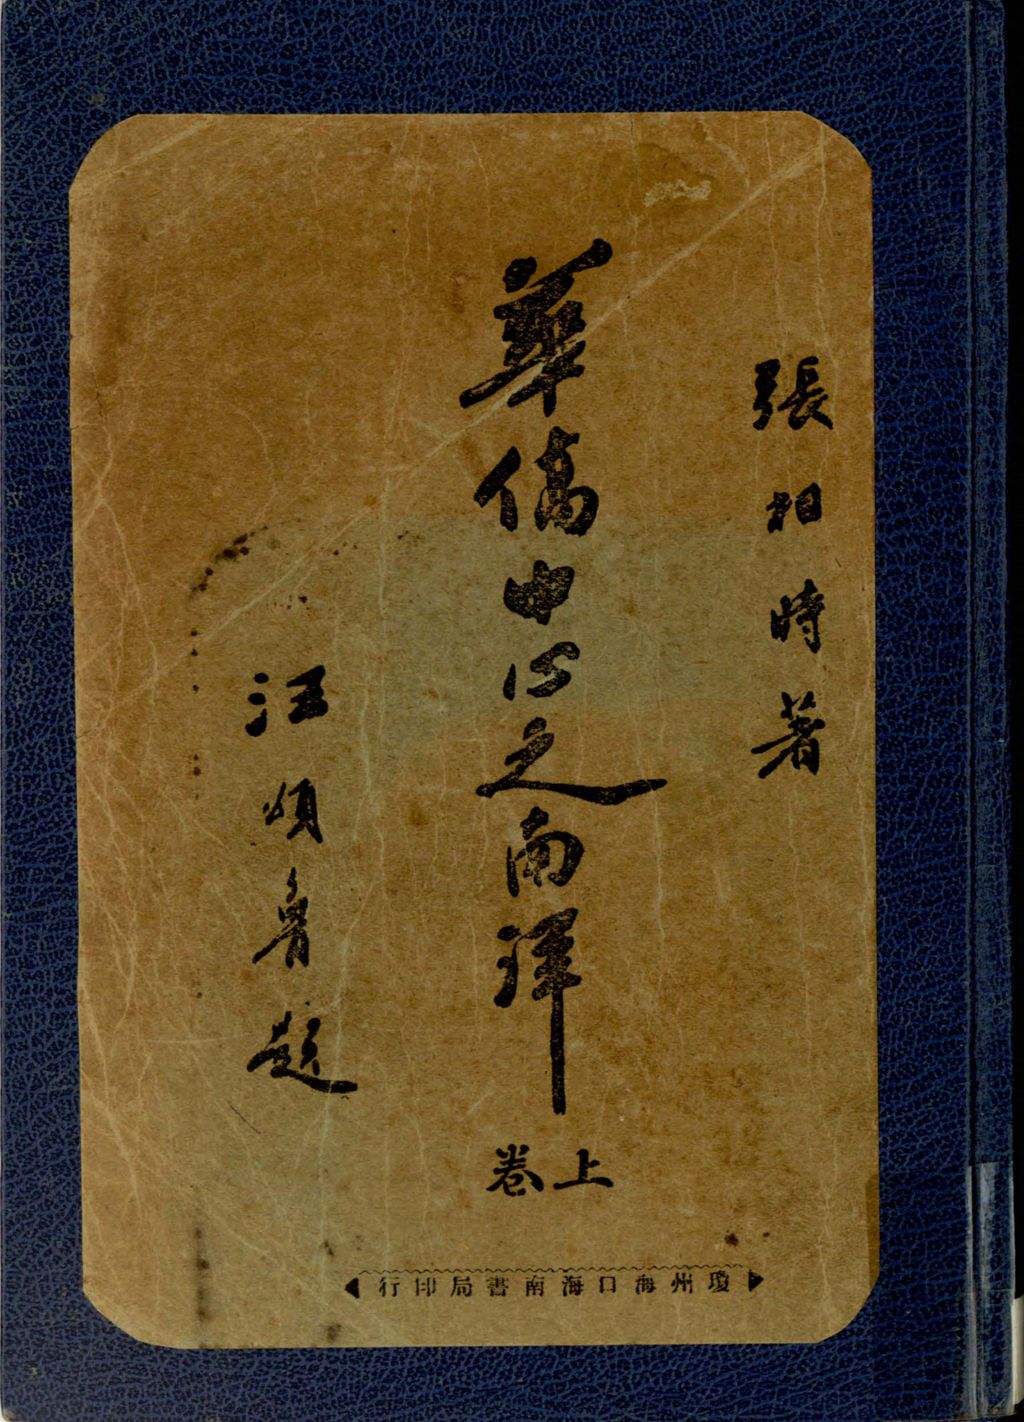 張相時著
華僑中心之南洋
上卷
汪頌魯題
瓊州海口海南書局印行